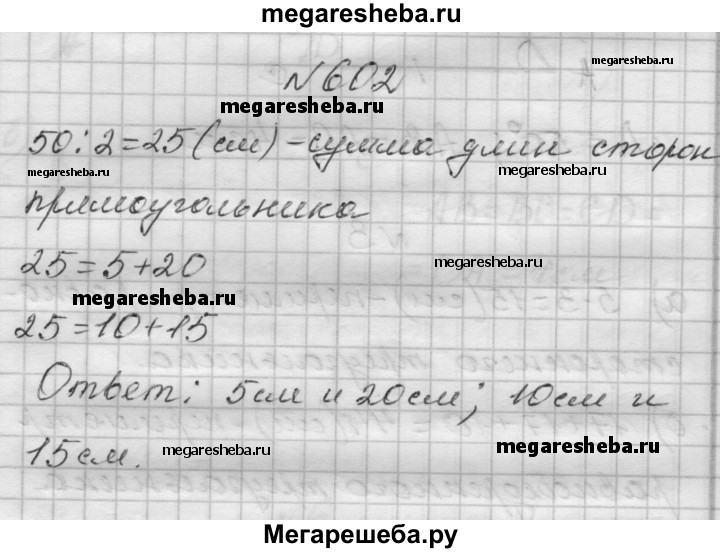 megaresheba.ru
megaresheba.ru
№602
megaresheba.ru
50:2=25(см)-сумма длин сторон
megaresheba.ru
megaresheba.ru
прямоугольника
25=5+20
megaresheba.ru
megaresheba.ru
25=10+15
Ответ: 5см и 20см; 10см и
15см.
megaresheba.ru
megaresheba.ru
Мегарешеба.ру